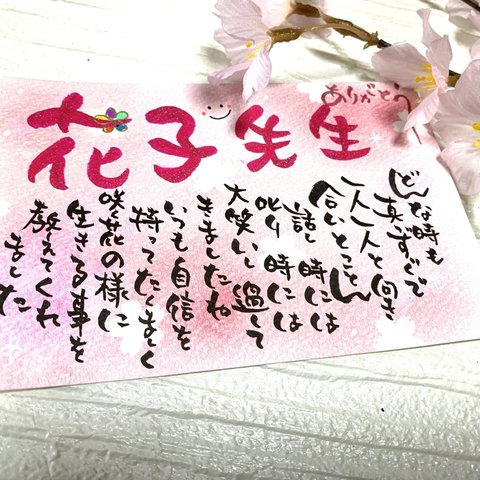 花子先生
ありがとう
どんな時も
真っすぐで
一人一人と向き
合いとことん
話し時には
叱り時には
大笑いし過して
きましたね
いつも自信を
持ってたくましく
咲く花の様に
生きる事を
教えてくれ
ました